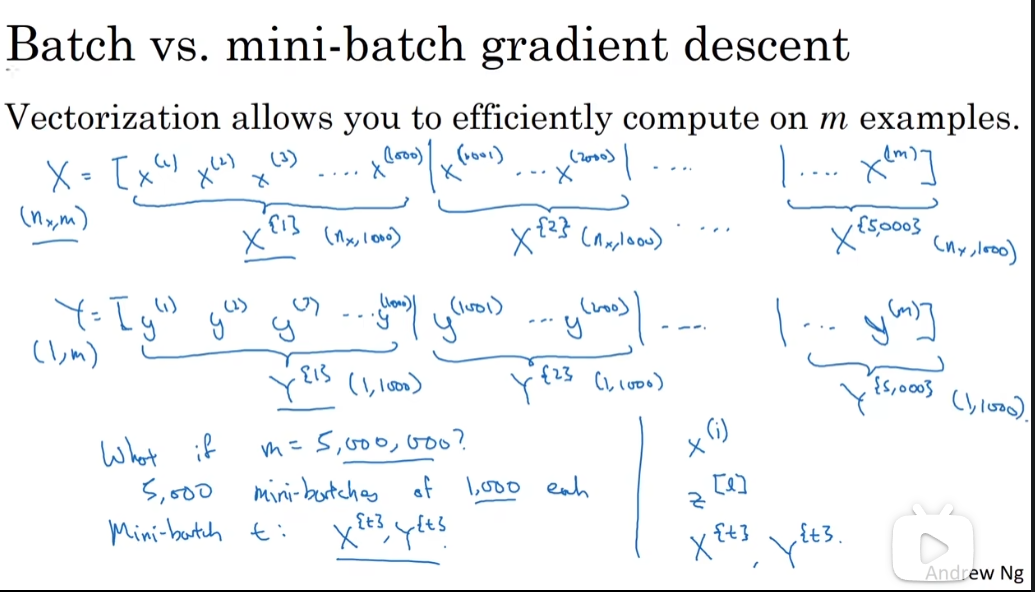 Batch vs. mini-batch gradient descent
Vectorization allows you to efficiently compute on m examples.
X = [x^(1) x^(2) x^(3) .... x^(1000) | x^(1001) ... x^(2000) | .... | .... x^(m)]
(n_x, m)
X^{1} (n_x, 1000) X^{2} (n_x, 1000) .... X^{5,000} (n_x, 1000)
Y = [y^(1) y^(2) y^(3) ... y^(1000) | y^(1001) ... y^(2000) | .... | ... y^(m)]
(1, m)
Y^{1} (1, 1000) Y^{2} (1, 1000) Y^{5,000} (1, 1000).
What if m = 5,000,000?
5,000 mini-batches of 1,000 each
Mini-batch t: X^{t}, Y^{t}
x^(i)
z^[l]
X^{t}, Y^{t}.
Andrew Ng